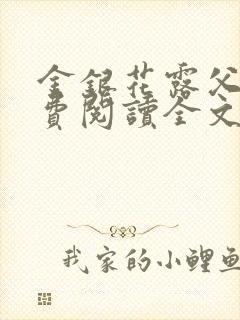 金銀花露父
費閱讀全文
我家的小鯉魚